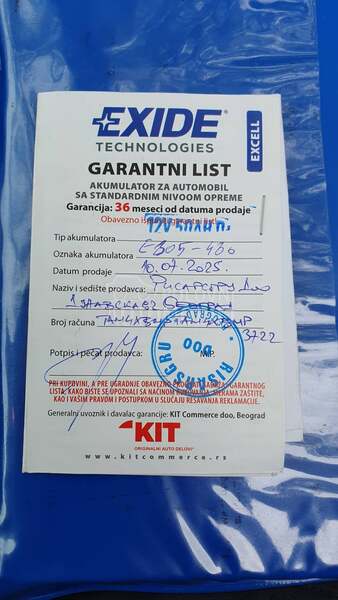 EXIDE
TECHNOLOGIES
EXCELL
GARANTNI LIST
AKUMULATOR ZA AUTOMOBIL
SA STANDARDNIM NIVOOM OPREME
Garancija: 36 meseci od datuma prodaje
Obavezno garantni list!
Tip akumulatora 12V 50AH
Oznaka akumulatora
Datum prodaje 10.07.2025.
Naziv i sedište prodavca:
Broj računa 3722
Potpis i pečat prodavca: M.P.
DOO
PRI KUPOVINI, A PRE UGRADNJE OBAVEZNO GARANTNOG
LISTA, KAKO BISTE SE UPOZNALI SA NAČINOM MERAMA ZAŠTITE,
KAO I VAŠIM PRAVOM I POSTUPKOM U SLUČAJU REŠAVANJA REKLAMACIJE.
Generalni uvoznik i davalac garancije: KIT Commerce doo, Beograd
KIT
ORIGINALNI AUTO DELOVI
www.kitcommerce.rs